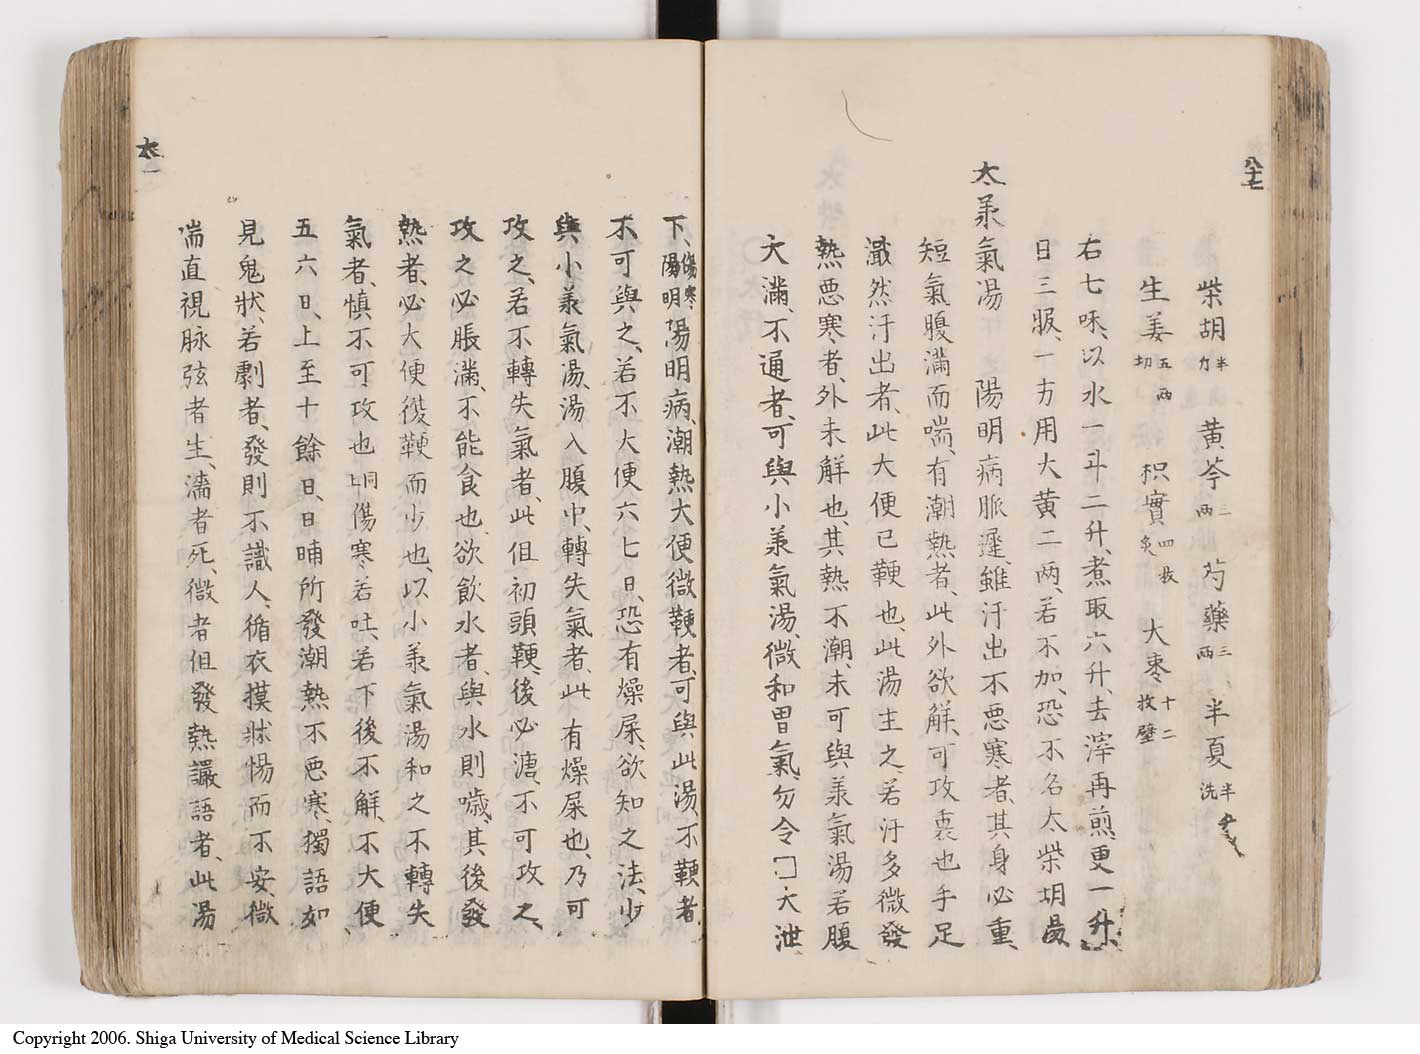 八十七
柴胡半斤 黄芩三両 芍藥三両 半夏半洗
生姜五両切 枳實四枚炙 大棗十二枚擘
右七味、以水一斗二升、煮取六升、去滓再煎、更一升、
日三服、一方用大黄二両、若不加、恐不名大柴胡湯
大承氣湯 陽明病脈遲、雖汗出不悪寒者、其身必重、
短氣腹滿而喘、有潮熱者、此外欲解、可攻裏也手足
濈然汗出者、此大便已鞕也、此湯主之、若汗多微發
熱悪寒者、外未解也、其熱不潮、未可與承氣湯若腹
大滿、不通者、可與小承氣湯、微和胃氣、勿令 大泄
下、傷寒陽明陽明病、潮熱大便微鞕者、可與此湯、不鞕者
不可與之、若不大便六七日、恐有燥屎、欲知之法、少
與小承氣湯、湯入腹中、轉失氣者、此有燥屎也、乃可
攻之、若不轉失氣者、此但初頭鞕、後必溏、不可攻之、
攻之必脹滿、不能食也、欲飲水者、與水則噦、其後發
熱者、必大便復鞕而少也、以小承氣湯和之不轉失
氣者、慎不可攻也同上傷寒若吐、若下後不解、不大便
五六日、上至十餘日、日晡所發潮熱不悪寒、獨語如
見鬼狀、若劇者、發則不識人、循衣摸牀惕而不安、微
喘直視脉弦者生、濇者死、微者但發熱讝語者、此湯
太一
Copyright 2006. Shiga University of Medical Science Library